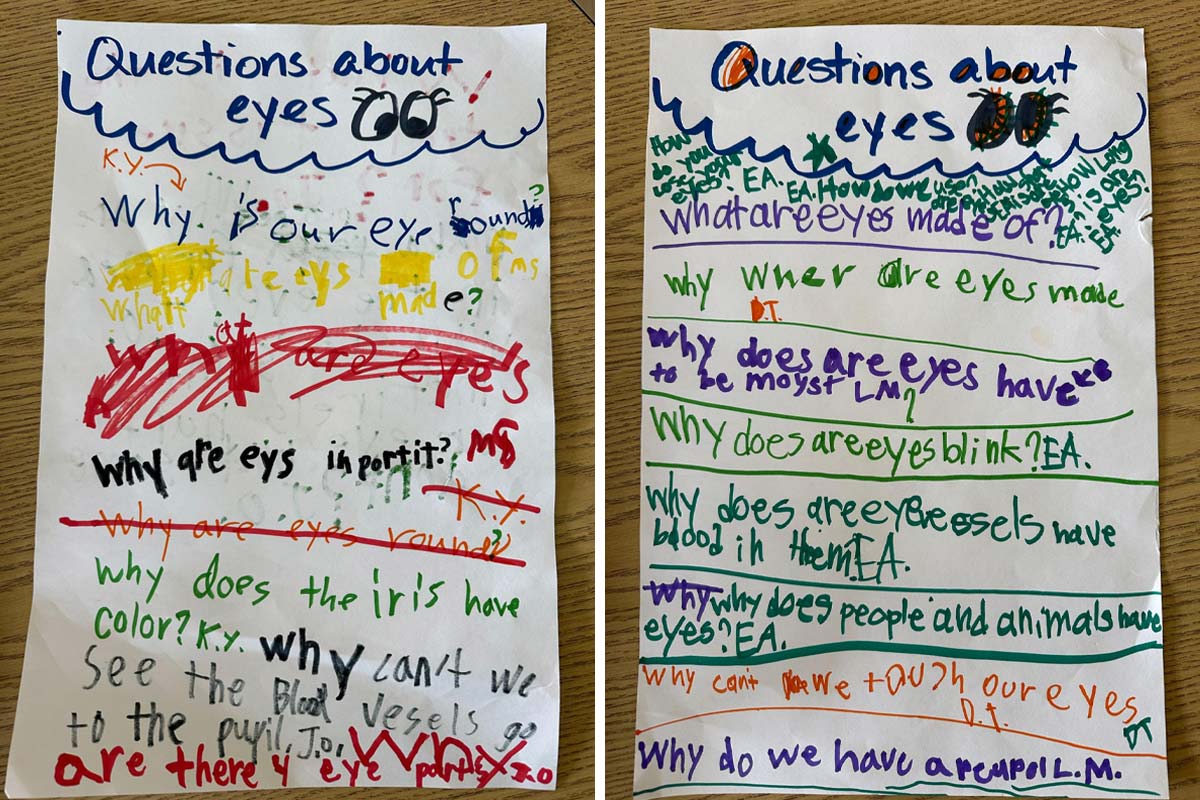 Questions about
eyes
K.Y.
Why is our eye round?
What are eys made of ms
?
What are eyes
Why are eys inportit? MS
K.Y.
Why are eyes round?
why does the iris have
color? K.Y.
Why can't we
See the Blood Vesels go
to the pupil. J.O.
are there 4 eye parts Why J.O
Questions about
eyes
How do you
lose your
eyes? EA.
EA. How do we
How Long
is are
eyes?
EA.
What are eyes made of?
why wher are eyes made
D.T.
why does are eyes have
to be moyst LM?
Why does are eyes blink? EA.
why does are eye vessels have
blood in them EA.
Why why does people and animals have
eyes? EA.
Why can't we touch our eyes
D.T.
Why do we have are L.M.